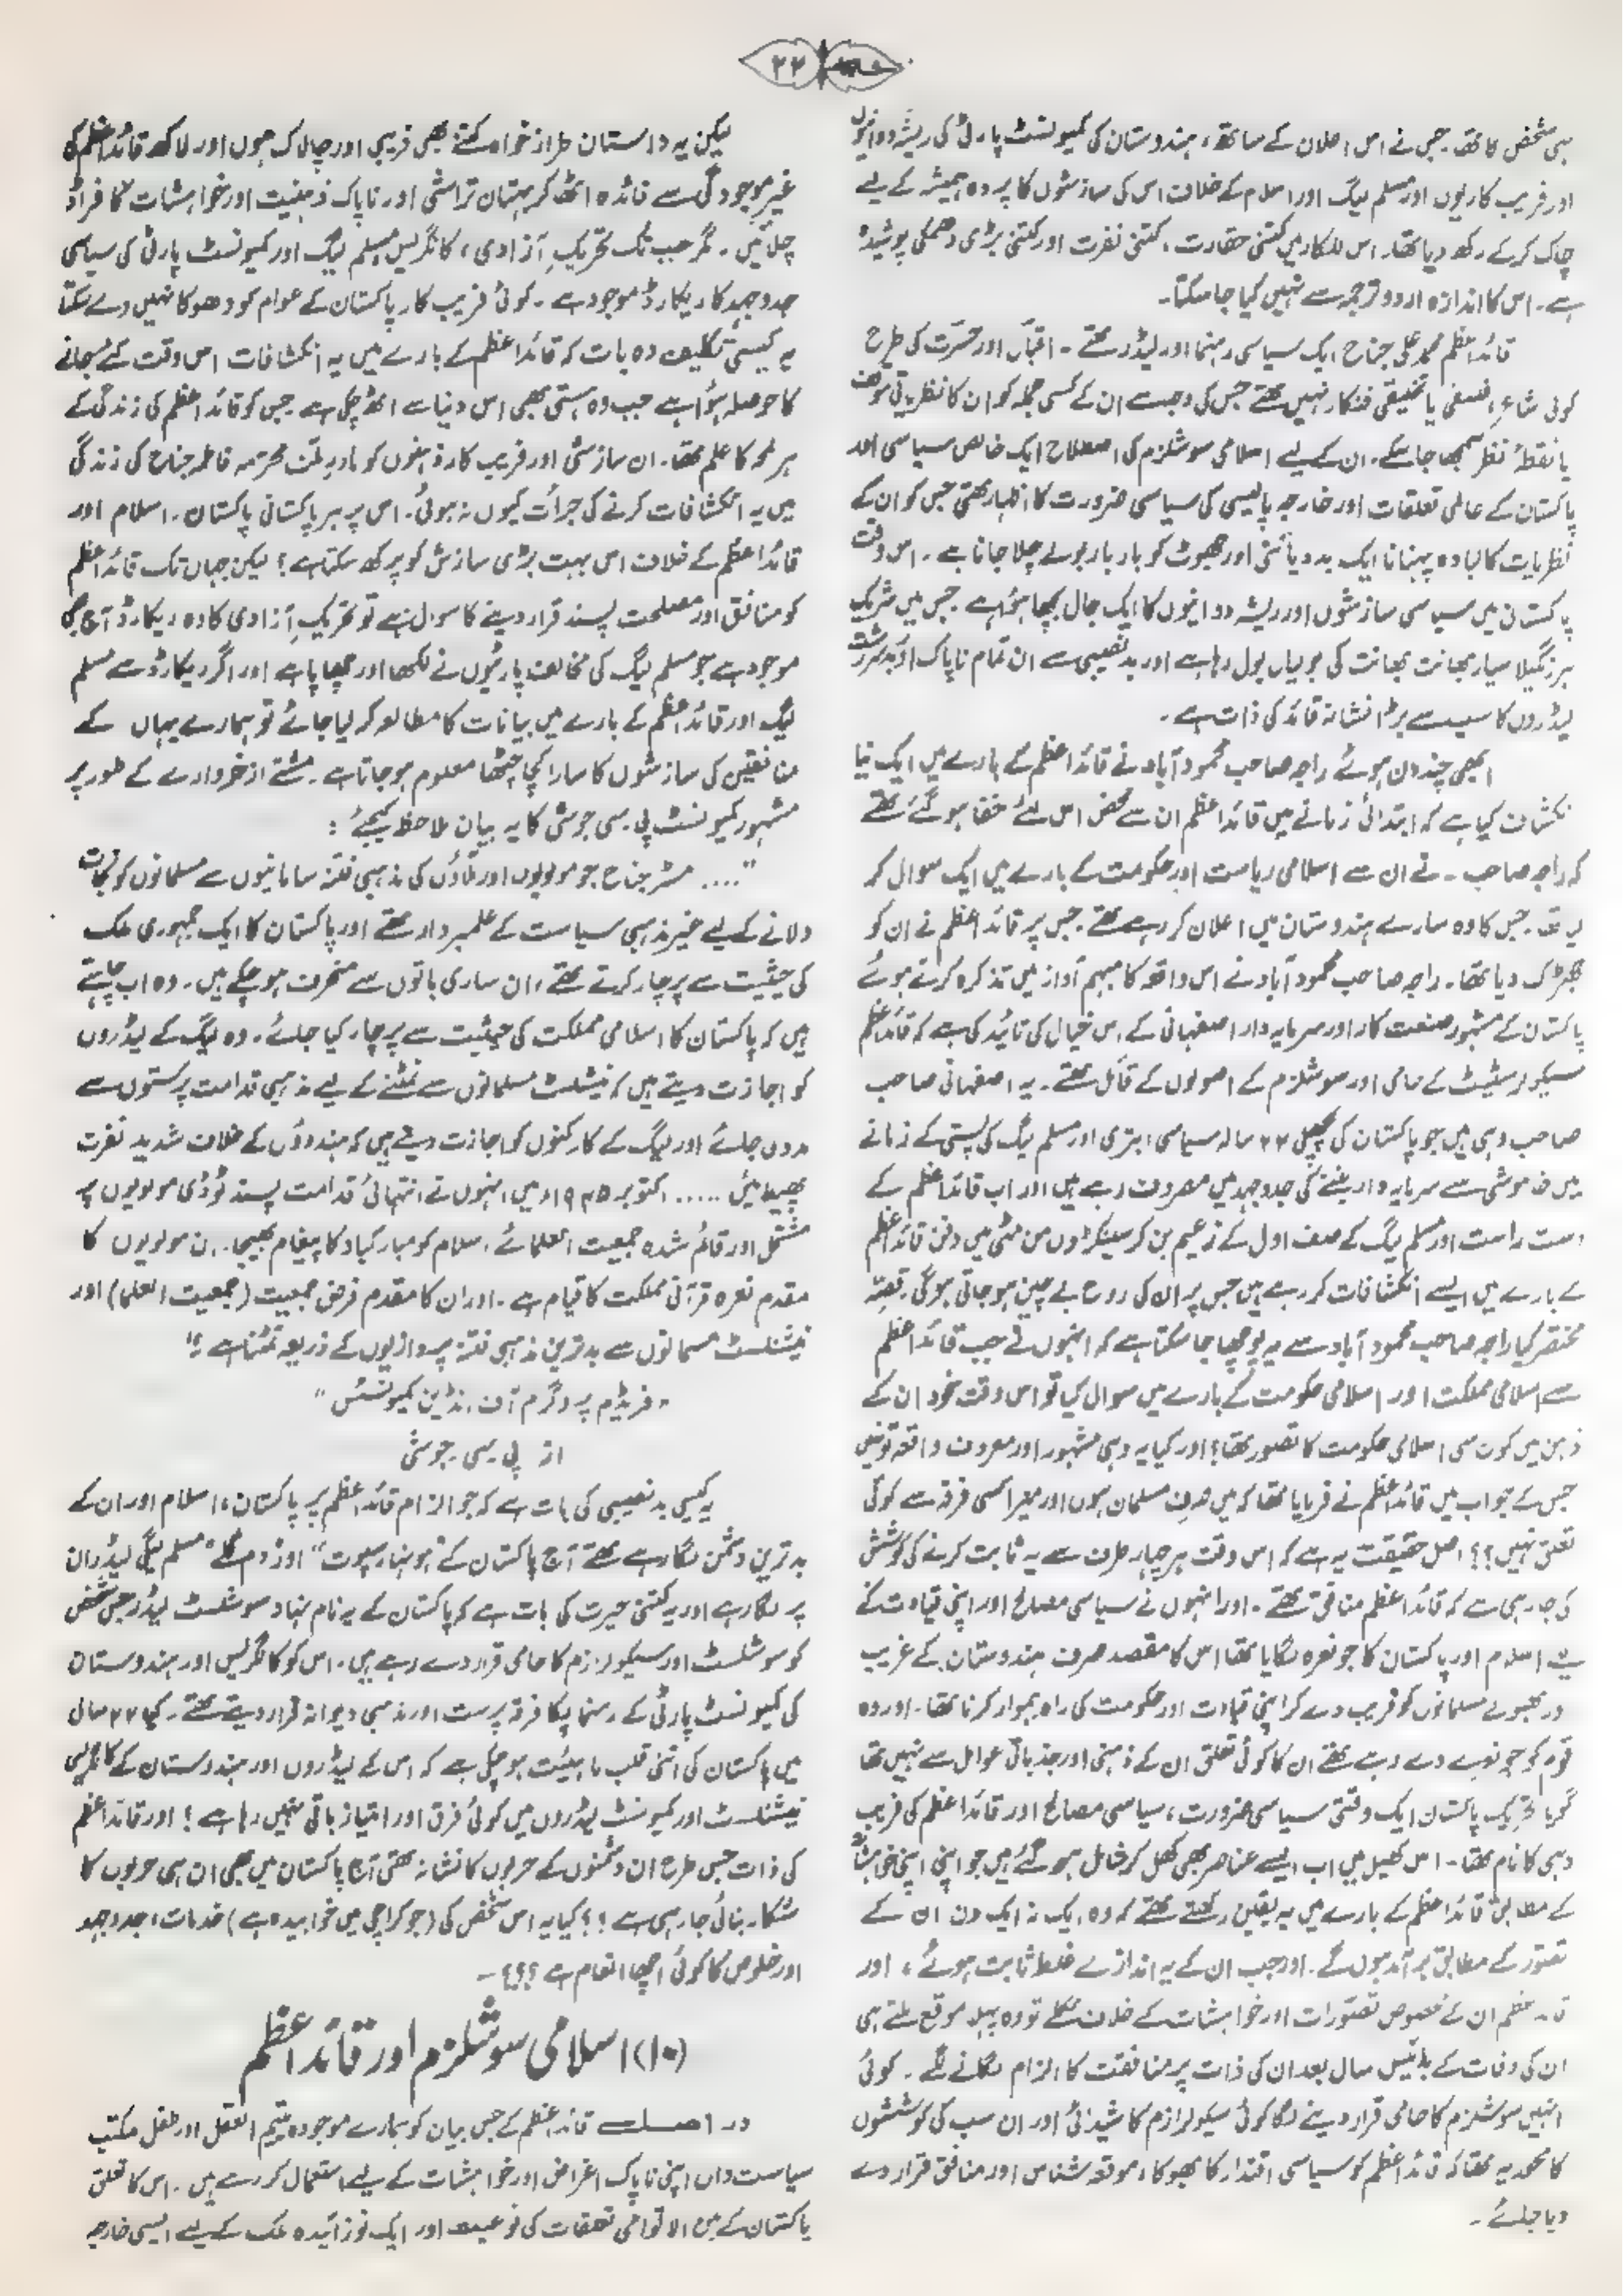 ۲۲
ہی شخص کا تھا۔ جس نے اس اعلان کے ساتھ، ہندوستان کی کمیونسٹ پارٹی کی ریشہ دوانیوں
اور فریب کاریوں اور مسلم لیگ اور اسلام کے خلاف اس کی سازشوں کا پردہ ہمیشہ کے لیے
چاک کر کے رکھ دیا تھا۔ اس للکار میں کتنی حقارت، کتنی نفرت اور کتنی بڑی دھمکی پوشیدہ
ہے۔ اس کا اندازہ اردو ترجمہ سے نہیں کیا جا سکتا۔
قائداعظم محمد علی جناح ایک سیاسی رہنما اور لیڈر تھے۔ اقبال اور حسرت کی طرح
کوئی شاعر، فلسفی یا تخلیقی فنکار نہیں تھے جس کی وجہ سے ان کے کسی جملہ کو ان کا نظریاتی موقف
یا نقطۂ نظر سمجھا جا سکے۔ ان کے لیے اسلامی سوشلزم کی اصطلاح ایک خالص سیاسی اور
پاکستان کے عالمی تعلقات اور خارجہ پالیسی کی سیاسی ضرورت کا اظہار تھی جس کو ان کے
نظریات کا لبادہ پہنانا ایک بددیانتی اور جھوٹ کو بار بار بولے چلا جانا ہے۔ اس وقت
پاکستان میں سیاسی سازشوں اور ریشہ دوانیوں کا ایک جال بچھا ہوا ہے۔ جس میں شریک
ہر رنگیلا سیار بھانت بھانت کی بولیاں بول رہا ہے اور بدنصیبی سے ان تمام ناپاک اور بدسرشت
لیڈروں کا سب سے بڑا نشانہ قائد کی ذات ہے۔
ابھی چند دن ہوئے راجہ صاحب محمود آباد نے قائداعظم کے بارے میں ایک نیا
نکشاف کیا ہے کہ ابتدائی زمانے میں قائداعظم ان سے محض اس لئے خفا ہو گئے تھے
کہ راجہ صاحب۔ نے ان سے اسلامی ریاست اور حکومت کے بارے میں ایک سوال کر
لیا تھا۔ جس کا وہ سارے ہندوستان میں اعلان کر رہے تھے۔ جس پر قائداعظم نے ان کو
جھڑک دیا تھا۔ راجہ صاحب محمود آباد نے اس واقعہ کا مبہم آواز میں تذکرہ کرتے ہوئے
پاکستان کے مشہور صنعت کار اور سرمایہ دار اصفہانی کے اس خیال کی تائید کی ہے کہ قائداعظم
سیکولر سٹیٹ کے حامی اور سوشلزم کے اصولوں کے قائل تھے۔ یہ اصفہانی صاحب
صاحب وہی ہیں جو پاکستان کی پچھلی ۲۲ سالہ سیاسی ابتری اور مسلم لیگ کی پستی کے زمانے
میں خاموشی سے سرمایہ دار بننے کی جدوجہد میں مصروف رہے ہیں اور اب قائداعظم کے
دست راست اور مسلم لیگ کے صف اول کے زعیم بن کر سینکڑوں من مٹی میں دفن قائداعظم
کے بارے میں ایسے انکشافات کر رہے ہیں جس پر ان کی روح بے چین ہو جاتی ہوگی۔ قصہ
مختصر کیا راجہ صاحب محمود آباد سے یہ پوچھا جا سکتا ہے کہ انہوں نے جب قائداعظم
سے اسلامی مملکت اور اسلامی حکومت کے بارے میں سوال کیا تو اس وقت خود ان کے
ذہن میں کون سی اسلامی حکومت کا تصور تھا؟ اور کیا یہ وہی مشہور اور معروف واقعہ تو نہیں
جس کے جواب میں قائداعظم نے فرمایا تھا کہ میں صرف مسلمان ہوں اور میرا کسی فرقہ سے کوئی
تعلق نہیں؟؟ اصل حقیقت یہ ہے کہ اس وقت ہر چہار طرف سے یہ ثابت کرنے کی کوشش
کی جا رہی ہے کہ قائداعظم منافق تھے۔ اور انہوں نے سیاسی مصالح اور اپنی قیادت کے
لیے اسلام اور پاکستان کا جو نعرہ لگایا تھا اس کا مقصد صرف ہندوستان کے غریب
ور بھولے مسلمانوں کو فریب دے کر اپنی قیادت اور حکومت کی راہ ہموار کرنا تھا۔ اور وہ
قوم کو جو نعرے دے رہے تھے ان کا کوئی تعلق ان کے ذہنی اور جذباتی عوامل سے نہیں تھا
گویا تحریک پاکستان ایک وقتی سیاسی ضرورت، سیاسی مصالح اور قائداعظم کی فریب
دہی کا نام تھا۔ اس کھیل میں اب ایسے عناصر بھی کھل کر شامل ہو گئے ہیں جو اپنی اپنی خواہشات
کے مطابق قائداعظم کے بارے میں یہ یقین رکھتے تھے کہ وہ ایک نہ ایک دن ان کے
تصور کے مطابق برآمد ہوں گے۔ اور جب ان کے یہ اندازے غلط ثابت ہوئے، اور
قائداعظم ان کے مخصوص تصورات اور خواہشات کے خلاف نکلے تو وہ پہلا موقع ملتے ہی
ان کی وفات کے بائیس سال بعد ان کی ذات پر منافقت کا الزام لگانے لگے۔ کوئی
انہیں سوشلزم کا حامی قرار دینے لگا کوئی سیکولرازم کا شیدائی اور ان سب کی کوششوں
کا محور یہ تھا کہ قائداعظم کو سیاسی اقتدار کا بھوکا، موقعہ شناس اور منافق قرار دے
دیا جائے۔
لیکن یہ داستان طراز خواہ کتنے بھی فریبی اور چالاک ہوں اور لاکھ قائداعظم کی
غیر موجودگی سے فائدہ اٹھا کر بہتان تراشی اور ناپاک ذہنیت اور خواہشات کا فراڈ
چلائیں۔ مگر جب تک تحریکِ آزادی، کانگریس مسلم لیگ اور کمیونسٹ پارٹی کی سیاسی
جدوجہد کا ریکارڈ موجود ہے۔ کوئی فریب کار پاکستان کے عوام کو دھوکا نہیں دے سکتا
یہ کیسی تکلیف دہ بات کہ قائداعظم کے بارے میں یہ انکشافات اس وقت کئے جانے
کا حوصلہ ہوا ہے جب وہ ہستی بھی اس دنیا سے اٹھ چکی ہے۔ جس کو قائداعظم کی زندگی کے
ہر لمحہ کا علم تھا۔ ان سازشی اور فریب کار ذہنوں کو مادرِ ملت محترمہ فاطمہ جناح کی زندگی
میں یہ انکشافات کرنے کی جرأت کیوں نہ ہوئی۔ اس پر ہر پاکستانی پاکستان، اسلام اور
قائداعظم کے خلاف اس بہت بڑی سازش کو پرکھ سکتا ہے؟ لیکن جہاں تک قائداعظم
کو منافق اور مصلحت پسند قرار دینے کا سوال ہے تو تحریکِ آزادی کا وہ ریکارڈ آج بھی
موجود ہے جو مسلم لیگ کی مخالف پارٹیوں نے لکھا اور چھاپا ہے اور اگر ریکارڈ سے مسلم
لیگ اور قائداعظم کے بارے میں بیانات کا مطالعہ کر لیا جائے تو ہمارے یہاں کے
منافقین کی سازشوں کا سارا کچا چٹھا معلوم ہو جاتا ہے۔ مشتے از خروارے کے طور پر
مشہور کمیونسٹ پی۔ سی جوشی کا یہ بیان ملاحظہ کیجئے :
”.... مسٹر جناح جو مولویوں اور ملاؤں کی مذہبی فتنہ سامانیوں سے مسلمانوں کو نجات
دلانے کے لیے غیر مذہبی سیاست کے علمبردار تھے اور پاکستان کا ایک جمہوری ملک
کی حیثیت سے پرچار کرتے تھے، ان ساری باتوں سے منحرف ہو چکے ہیں۔ وہ اب چاہتے
ہیں کہ پاکستان کا اسلامی مملکت کی حیثیت سے پرچار کیا جائے۔ وہ لیگ کے لیڈروں
کو اجازت دیتے ہیں کہ نیشنلسٹ مسلمانوں سے نمٹنے کے لیے مذہبی قدامت پرستوں سے
مدد لی جائے اور لیگ کے کارکنوں کو اجازت دیتے ہیں کہ ہندوؤں کے خلاف شدید نفرت
پھیلائیں ..... اکتوبر ۱۹۴۵ء میں انہوں نے انتہائی قدامت پسند ٹوڈی مولویوں پر
مشتمل اور قائم شدہ جمعیت العلمائے اسلام کو مبارکباد کا پیغام بھیجا۔ ان مولویوں کا
مقدم نعرہ قرآنی مملکت کا قیام ہے۔ اور ان کا مقدم فرض جمعیت (جمعیت العلما) اور
نیشنلسٹ مسلمانوں سے بدترین مذہبی فتنہ پردازیوں کے ذریعہ نمٹنا ہے؟“
”فریڈم پروگرم آف انڈین کمیونسٹس“
از پی۔ سی۔ جوشی
یہ کیسی بدنصیبی کی بات ہے کہ جو الزام قائداعظم پر پاکستان، اسلام اور ان کے
بدترین دشمن لگا رہے تھے آج پاکستان کے ”ہونہار سپوت“ اور نام کے ”مسلم لیگی لیڈران
پر لگا رہے اور یہ کتنی حیرت کی بات ہے کہ پاکستان کے یہ نام نہاد سوشلسٹ لیڈر جس شخص
کو سوشلسٹ اور سیکولرازم کا حامی قرار دے رہے ہیں۔ اس کو کانگریس اور ہندوستان
کی کمیونسٹ پارٹی کے رہنما پکا فرقہ پرست اور مذہبی دیوانہ قرار دیتے تھے۔ کیا ۲۲ سال
میں پاکستان کی اتنی قلب ماہیئت ہو چکی ہے کہ اس کے لیڈروں اور ہندوستان کے کانگریسی
نیشنلسٹ اور کمیونسٹ لیڈروں میں کوئی فرق اور امتیاز باقی نہیں رہا ہے؟ اور قائداعظم
کی ذات جس طرح ان دشمنوں کے حربوں کا نشانہ تھی آج پاکستان میں بھی ان ہی حربوں کا
شکار بنائی جا رہی ہے؟؟ کیا یہ اس شخص کی (جو کراچی میں خوابیدہ ہے) خدمات، جدوجہد
اور خلوص کا کوئی اچھا انعام ہے ؟؟؟۔
(۱۰) اسلامی سوشلزم اور قائداعظم
در اصل قائداعظم کے جس بیان کو ہمارے موجودہ یتیم العقل اور طفل مکتب
سیاست داں اپنی ناپاک اغراض اور خواہشات کے لیے استعمال کر رہے ہیں۔ اس کا تعلق
پاکستان کے بین الاقوامی تعلقات کی نوعیت اور ایک نوزائیدہ ملک کے لیے ایسی خارجہ